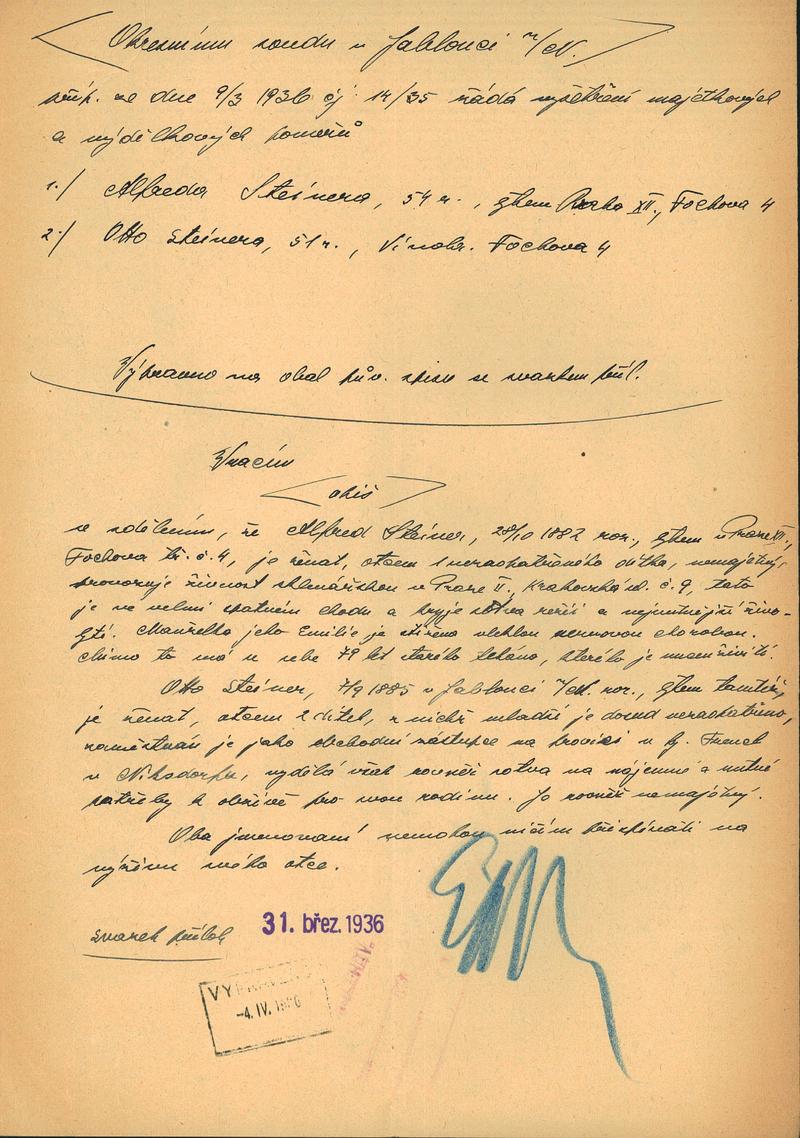 Okresnímu soudu v Jablonci n/N.
příp. ze dne 9/3 1936 čj 14/35 žádá vyšetření majetkových
a výdělkových poměrů
1./ Alfreda Steinera, 54 r., bytem Praha XII., Fochova 4
2./ Otto Steinera, 51 r., Vinohr. Fochova 4
Vypraveno na obal pův. spisu se svazkem příl.
Vracím
spis
se sdělením, že Alfred Steiner, 28/10 1882 nar., bytem v Praze XII.,
Fochova tř. č. 4, je ženat, otcem 1 nezaopatřeného dítka, nemajetný,
provozuje živnost sklenářskou v Praze II., Krakovská ul. č. 9, tato
je ve velmi špatném chodu a kryje sotva režii a nejnutnější živo-
bytí. Manželka jeho Emilie je stižena těžkou nervovou chorobou.
Mimo to má u sebe 79 let starého tchána, kterého je nucen živiti.
Otto Steiner, 7/9 1885 v Jablonci n/N. nar., bytem tamtéž,
je ženat, otcem 2 dítek, z nichž mladší je dosud nezaopatřeno,
zaměstnán je jako obchodní zástupce na provisi u fy.
v Niksdorfu, vydělá však rovněž sotva na nájemné a nutné
potřeby k obživě pro svou rodinu. Je rovněž nemajetný.
Oba jmenovaní nemohou ničím přispívati na
výživu svého otce.
31. břez. 1936
svazek příloh
VYPRAVENO
-4. IV. 1936